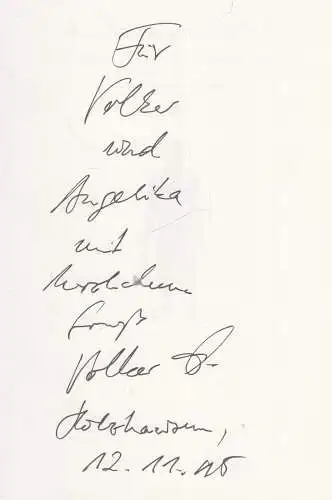 Für
Volker
und
Angelika
mit
herzlichem
Gruß
Volker
Holzhausen,
12.11.95